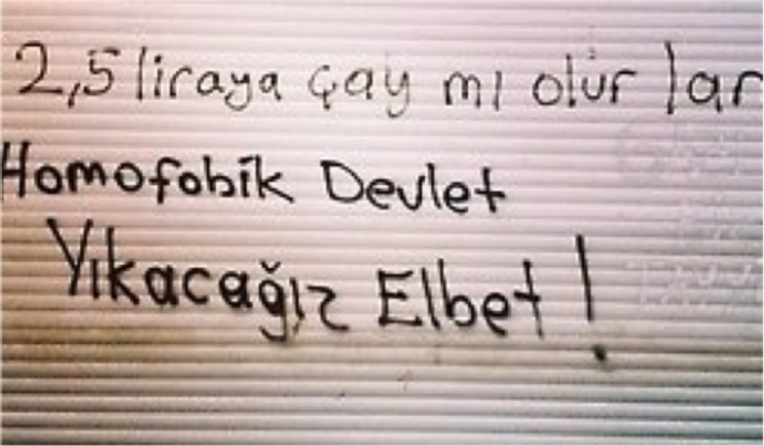 2,5 liraya çay mı olur lan
Homofobik Devlet
Yıkacağız Elbet!